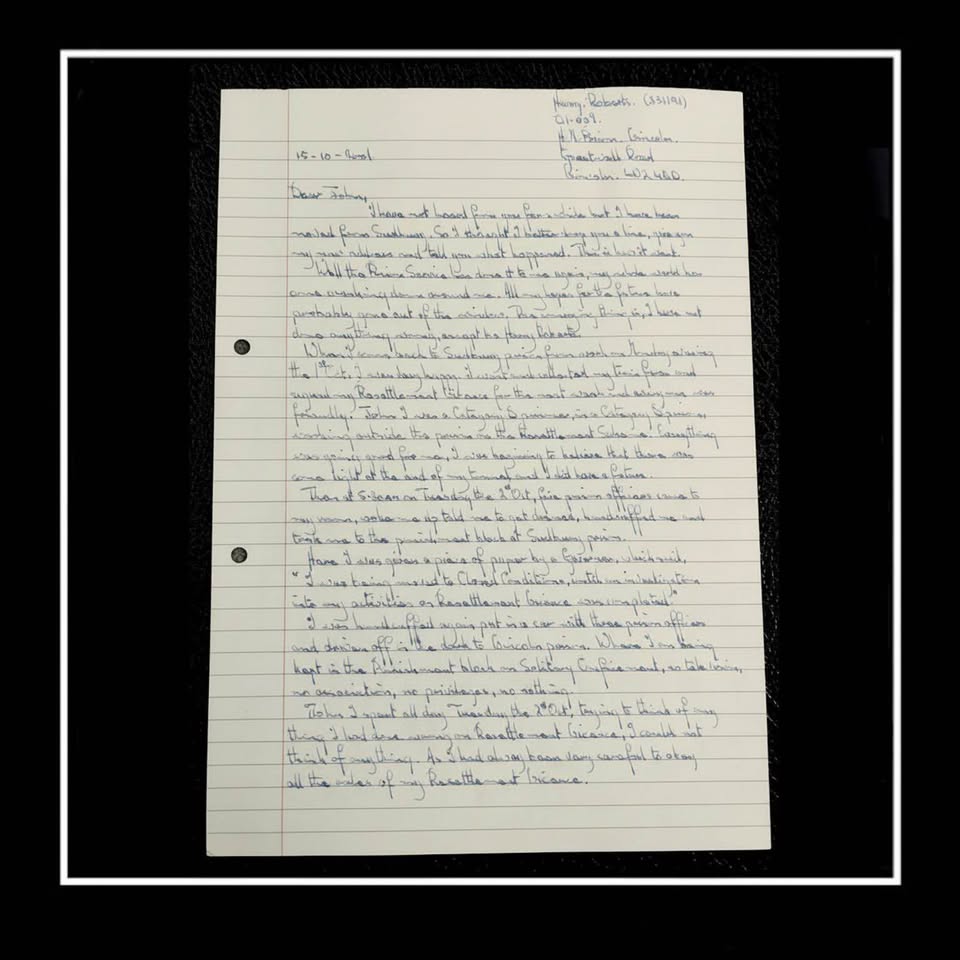 Harry. Roberts. (331191)
D1-009.
H.M. Prison. Lincoln.
Greetwell Road
Lincoln. LN2 4BD.
15-10-2001
Dear John,
I have not heard from you for a while but I have been
moved from Sudbury. So I thought I better drop you a line, give you
my new address and tell you what happened. This is how it went.
Well the Prison Service has done it to me again, my whole world has
come crashing down around me. All my hopes for the future have
probably gone out of the window. The annoying thing is, I have not
done anything wrong, except be Harry Roberts.
When I came back to Sudbury prison from work on Monday evening
the 1st Oct, I was very happy. I went and collected my 
signed my Resettlement Licence for the next week and everyone was
friendly. John I was a Category D prisoner, in a Category D prison,
working outside the prison on the Resettlement Scheme. Everything
was going good for me, I was beginning to believe that there was
some light at the end of my tunnel and I did have a future.
Then at 5.30am on Tuesday the 2nd Oct, five prison officers came to
my room, woke me up told me to get dressed, handcuffed me and
took me to the punishment block at Sudbury prison.
Here I was given a piece of paper by a Governor, which said,
"I was being moved to Closed Conditions, until an investigation
into my activities on Resettlement Licence was completed."
I was handcuffed again put in a car with three prison officers
and driven off in the dark to Lincoln prison. Where I am being
kept in the Punishment block on Solitary Confinement, no television,
no association, no privileges, no nothing.
John I spent all day Tuesday, the 2nd Oct, trying to think of any
thing I had done wrong on Resettlement Licence, I could not
think of anything. As I had always been very careful to obey
all the rules of my Resettlement Licence.